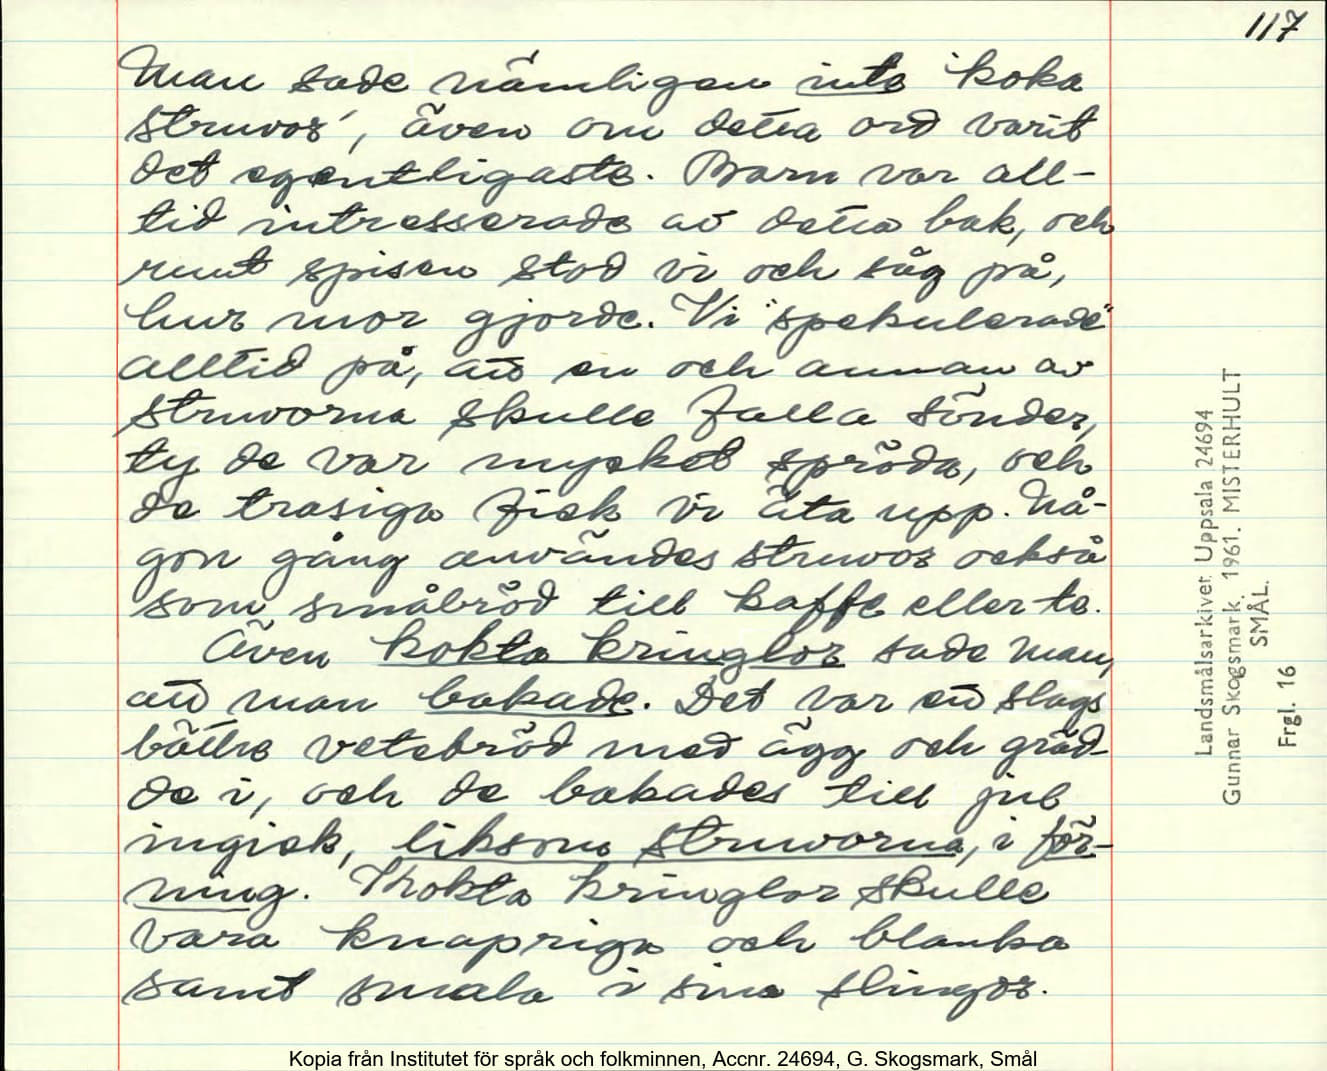 117
Man sade nämligen inte "koka
struvor", även om detta ord varit
det egentligaste. Barn var all-
tid intresserade av detta bak, och
runt spisen stod vi och såg på,
hur mor gjorde. Vi "spekulerade"
alltid på, att en och annan av
struvorna skulle falla sönder,
ty de var mycket spröda, och
de trasiga fick vi äta upp. Nå-
gon gång användes struvor också
som småbröd till kaffe eller te.
Även kokta kringlor sade man,
att man bakade. Det var ett slags
bättre vetebröd med ägg och gräd-
de i, och de bakades till jul
ingick, liksom struvorna, i för-
ning. Kokta kringlor skulle
vara knapriga och blanka
samt smala i sina slingor.
Landsmålsarkivet Uppsala 24694
Gunnar Skogsmark. 1961. MISTERHULT
SMÅL.
Frgl. 16
Kopia från Institutet för språk och folkminnen, Accnr. 24694, G. Skogsmark, Smål